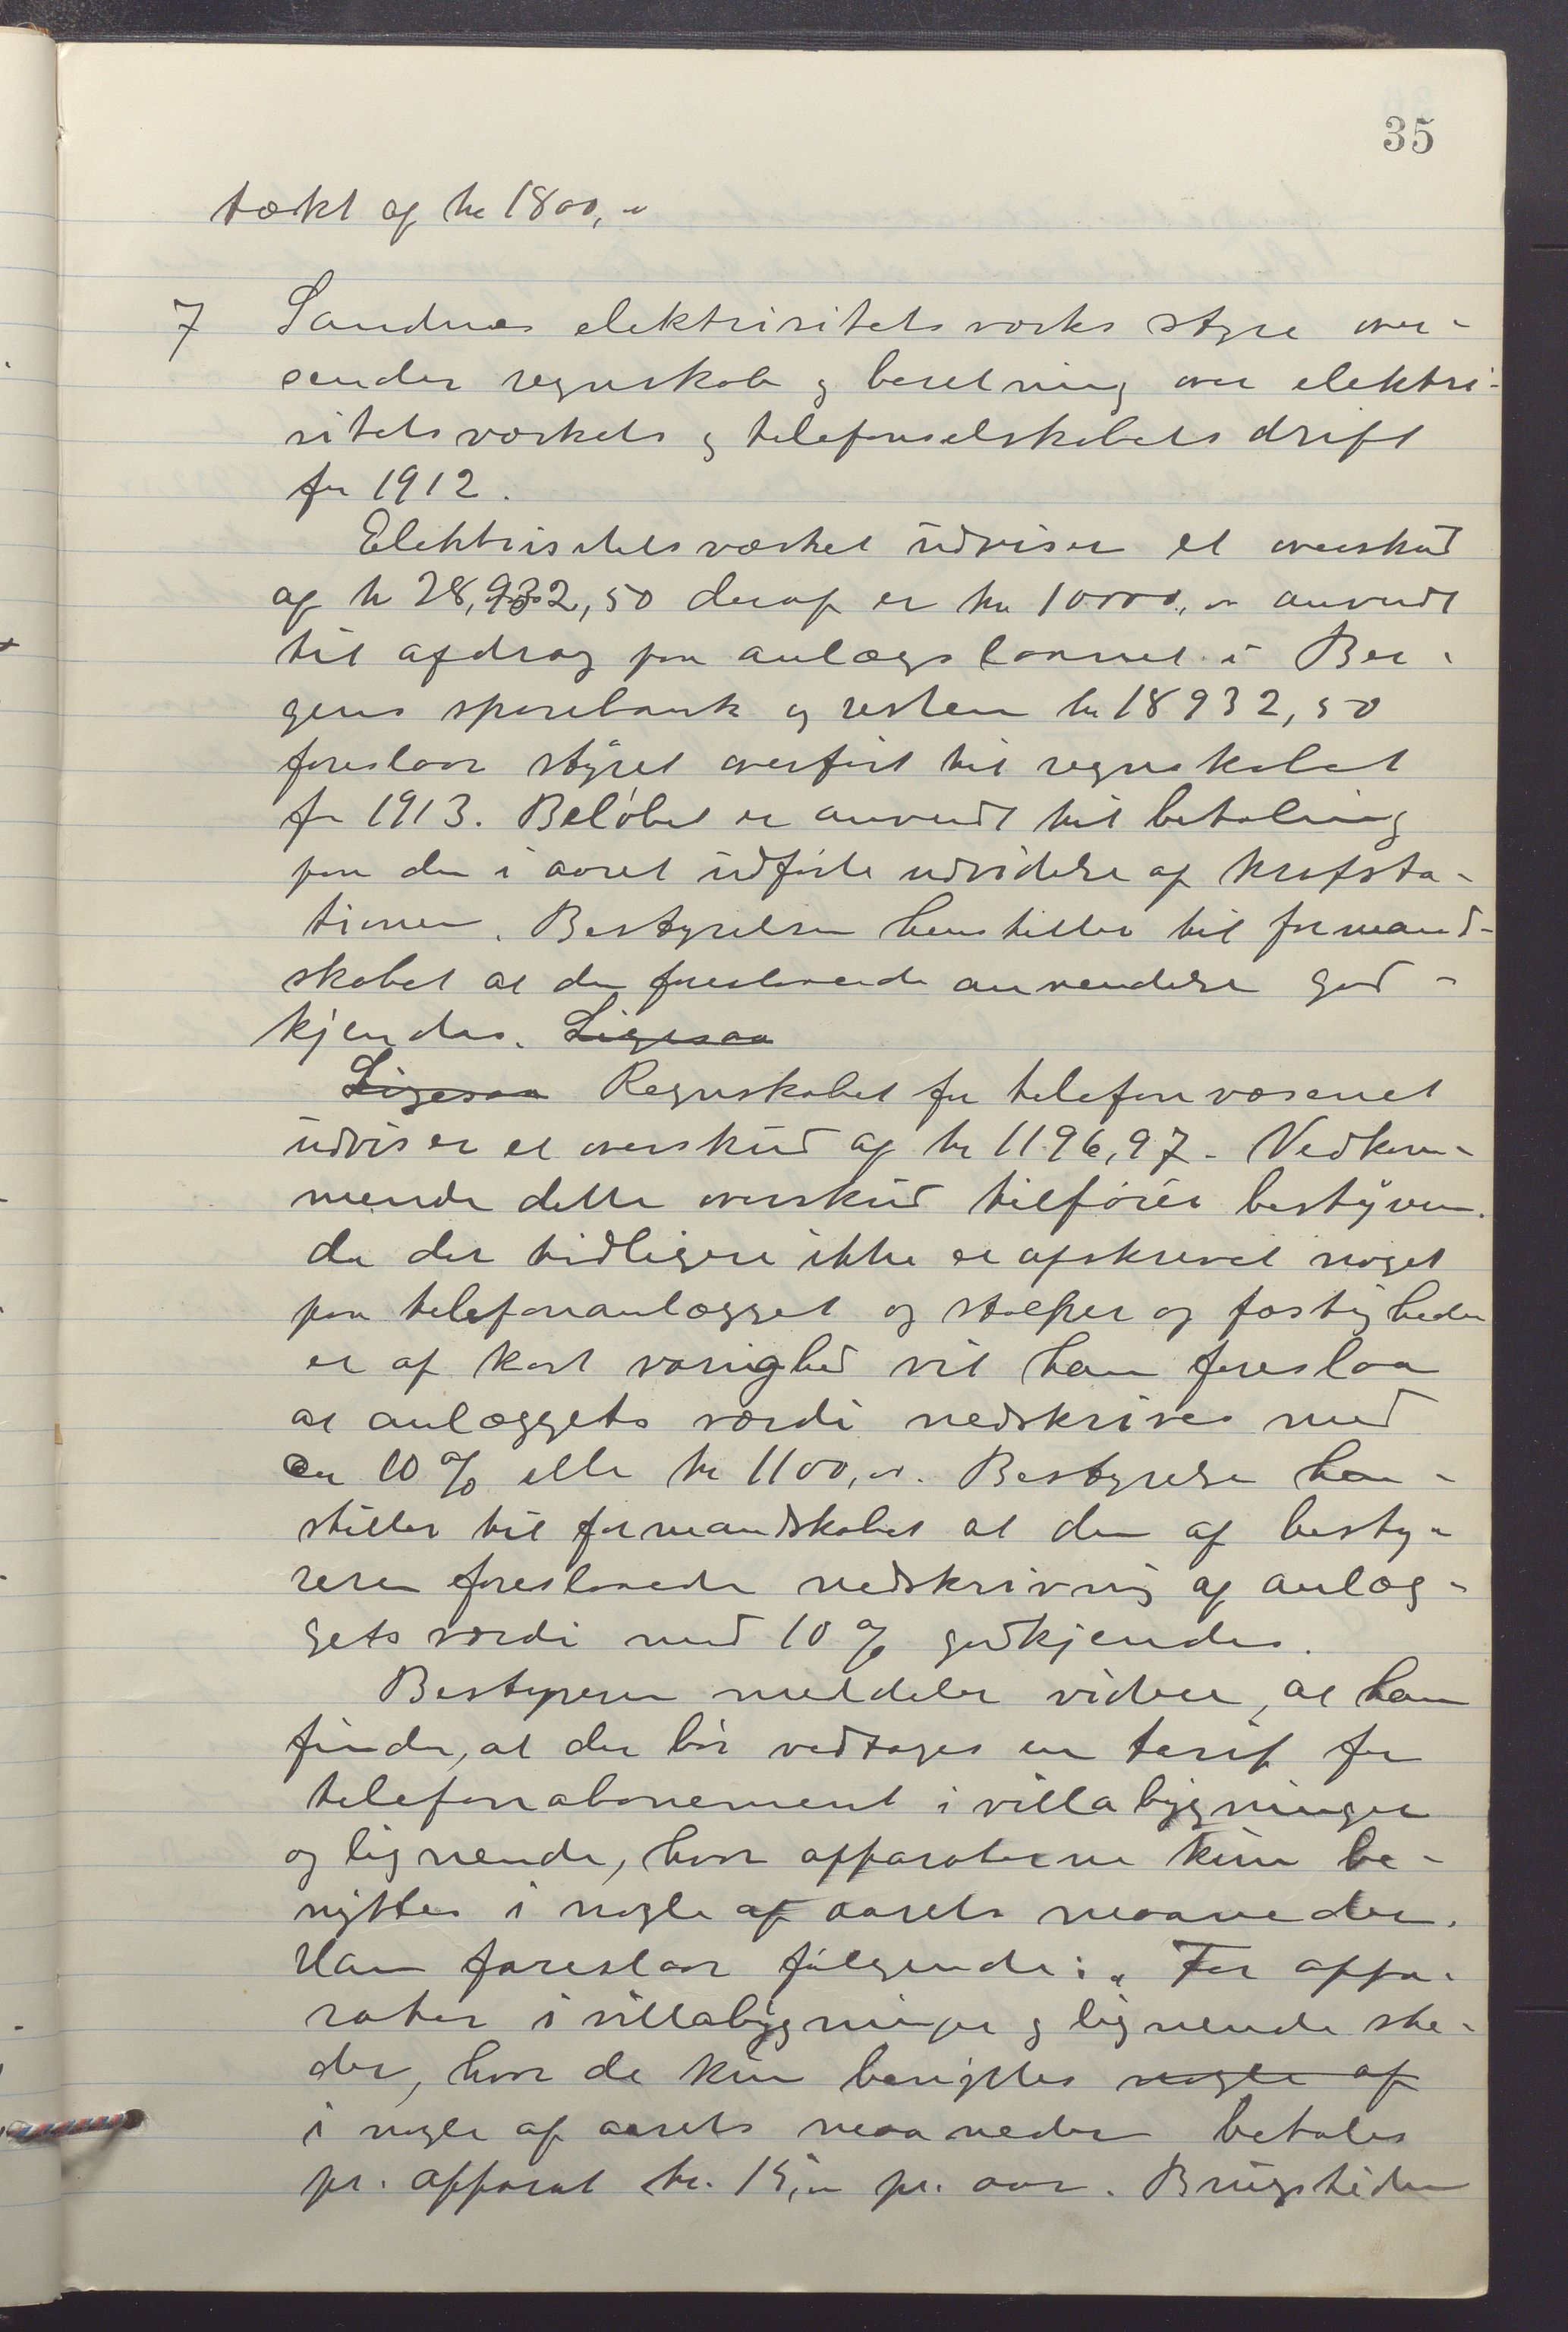 35
tækt af kr 1800,00
7 Sandnes elektrisitetsværks styre over-
sender regnskab og beretning over elektri-
sitetsværkets og telefonselskabets drift
for 1912.
Elektrisitetsværket udviser et overskud
af kr 28,932,50 deraf er kr 10000,00 anvendt
til afdrag paa anlægslaanet i Ber-
gens sparebank og resten kr 18932,50
foreslaar styret overført til regnskabet
for 1913. Beløbet er anvendt til betaling
paa den i aaret udførte udvidelse af krafsta-
tionen. Bestyrelsen henstiller til formand-
skabet at den foreslaaede anvendelse god-
kjendes. Ligesaa
Ligesaa Regnskabet for telefonvæsenet
udviser et overskud af kr 1196,97. Vedkom-
mende dette overskud tilfører bestyreren.
da der tidligere ikke er afskrevet noget
paa telefonanlægget og stolper og fastigheder
er af kort varighed vil han foreslaa
at anlæggets værdi nedskrives med
ca 10 % eller kr 1100,00. Bestyrelsen hen-
stiller til formandskabet at den af besty-
reren foreslaaede nedskrivning af anlæg-
gets værdi med 10 % godkjendes.
Bestyreren meddeler videre, at han
finder, at der bør vedtages en tarif for
telefonabonement i villabygninger
og lignende, hvor apparaterne kun be-
nyttes i nogle af aarets maaneder.
Han foreslaar følgende: „For appa-
rater i villabygninger og lignende ste-
der, hvor de kun benyttes nogle af
i nogle af aarets maaneder betales
pr. apparat kr. 15,00 pr. aar. Brugstiden